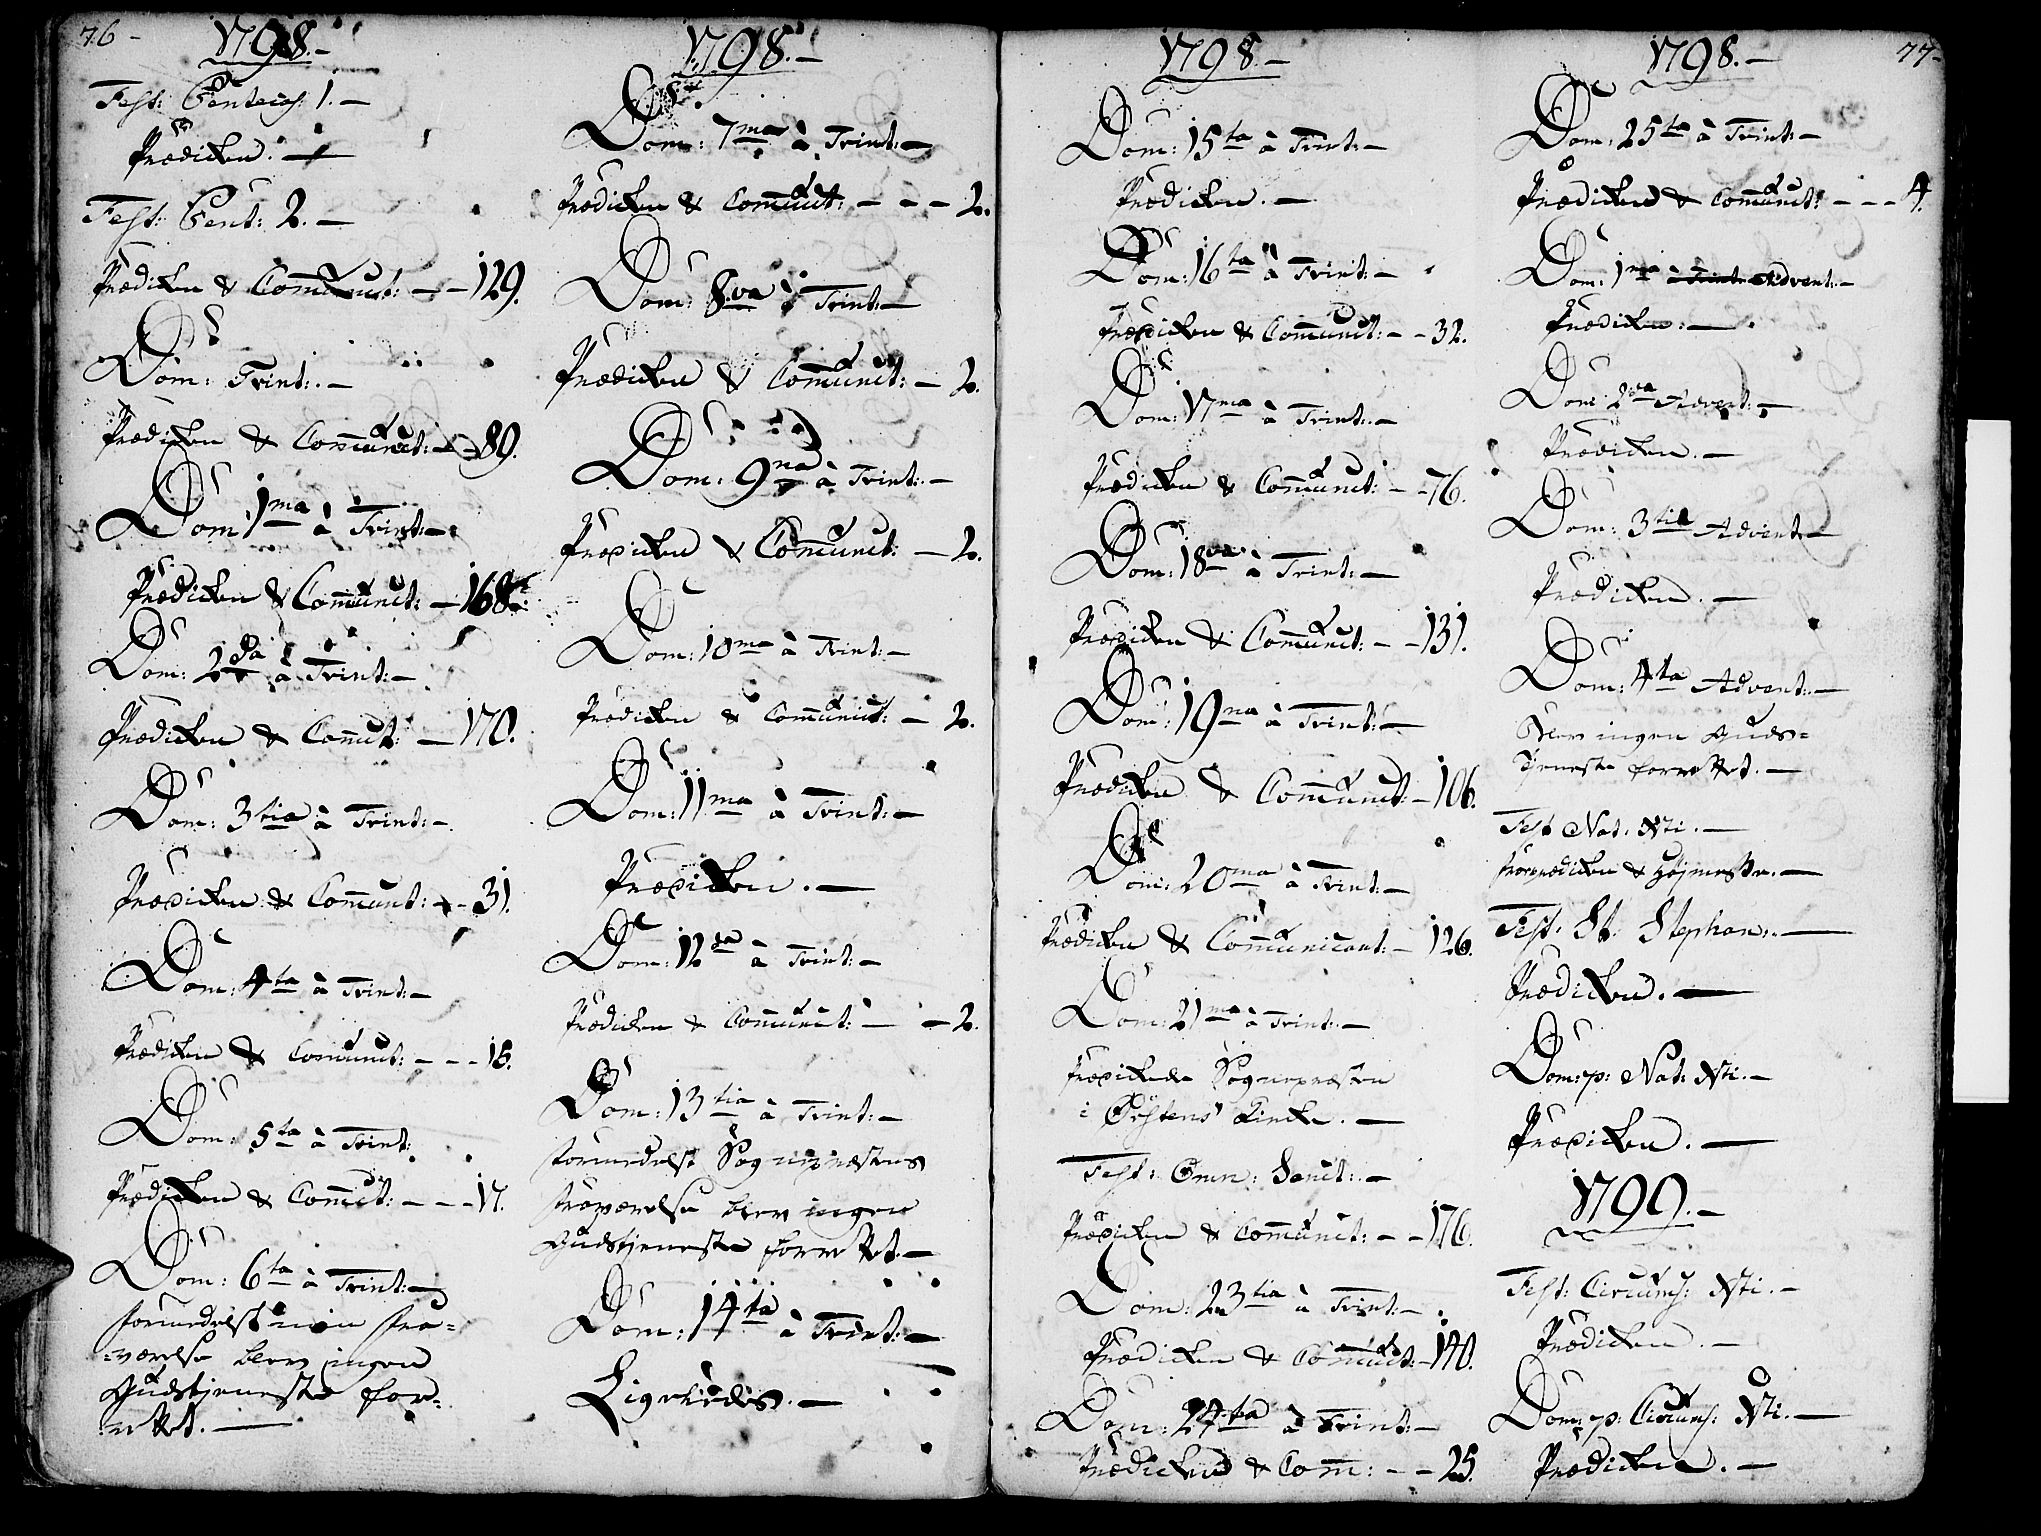 76 -
1798. -
Fest: Pentecos: 1. -
Prædiken. -
Fest: Pent: 2. -
Prædiken & Communit: - - 129.
Dom: Trint: -
Prædiken & Communict: - - 89.
Dom 1ma à Trint: -
Prædiken & Communict: - 168.
Dom: 2da à Trint: -
Prædiken & Comuct: - 170.
Dom: 3tia à Trint: -
Prædiken & Communt: - - 31.
Dom: 4ta à Trint: -
Prædiken & Comunict: - - - 16.
Dom: 5ta à Trint:
Prædiken & Commct: - - - 17.
Dom: 6ta à Trint: -
formedelst min fra-
-værelse blev ingen
Gudstjeneste for-
rettet. -
1798. -
Dom: 7ma à Trint: -
Prædiken & Comunict: - - - 2.
Dom: 8va à Trint: -
Prædiken & Communict: - 2.
Dom: 9na à Trint: -
Prædiken & Communict: - 2.
Dom: 10ma à Trint: -
Prædiken & Communict: - 2.
Dom: 11ma à Trint: -
Prædiken. -
Dom: 12da à Trint: -
Prædiken & Communict: - - 2.
Dom: 13tia à Trint: -
formedelst Sognepræstens
fraværelse blev ingen
Gudstjeneste forrettet. -
Dom: 14ta à Trint: -
Ligeledes. -
1798. -
Dom: 15ta à Trint: -
Prædiken. -
Dom: 16ta à Trint: -
Prædiken & Communict: - - 32.
Dom: 17ma à Trint: -
Prædiken & Communict: - - 76.
Dom: 18va à Trint: -
Prædiken & Communict: - - 131.
Dom: 19na à Trint: -
Prædiken & Communict: - 106.
Dom: 20ma à Trint: -
Prædiken & Communicant: - 126.
Dom: 21ma à Trint: -
Prædikede Sognepræsten
i Ørstens Kirke. -
Fest: Omn: Sanct: -
Prædiken & Communict: - - 176.
Dom: 23tia à Trint: -
Prædiken & Comuct: - 140.
Dom: 24ta à Trint: -
Prædiken & Comm: - - 25.
1798. -
77-
Dom: 25ta à Trint: -
Prædiken & Communict: - - - 4.
Dom: 1ma à Trint: Advent: -
Prædiken: -
Dom: 2da Advent: -
Prædiken. -
Dom: 3tia Advent: -
Prædiken. -
Dom: 4ta Advent: -
Blev ingen Guds=
Tjeneste forrettet. -
Fest Nat: Xti. -
Froeprædiken & Højmesse. -
Fest: St: Stephan: -
Prædiken. -
Dom: p: Nat: Xti. -
Prædiken. -
1799. -
Fest: Circums: Xti. -
Prædiken. -
Dom: p: Circums: Xti. -
Prædiken. -